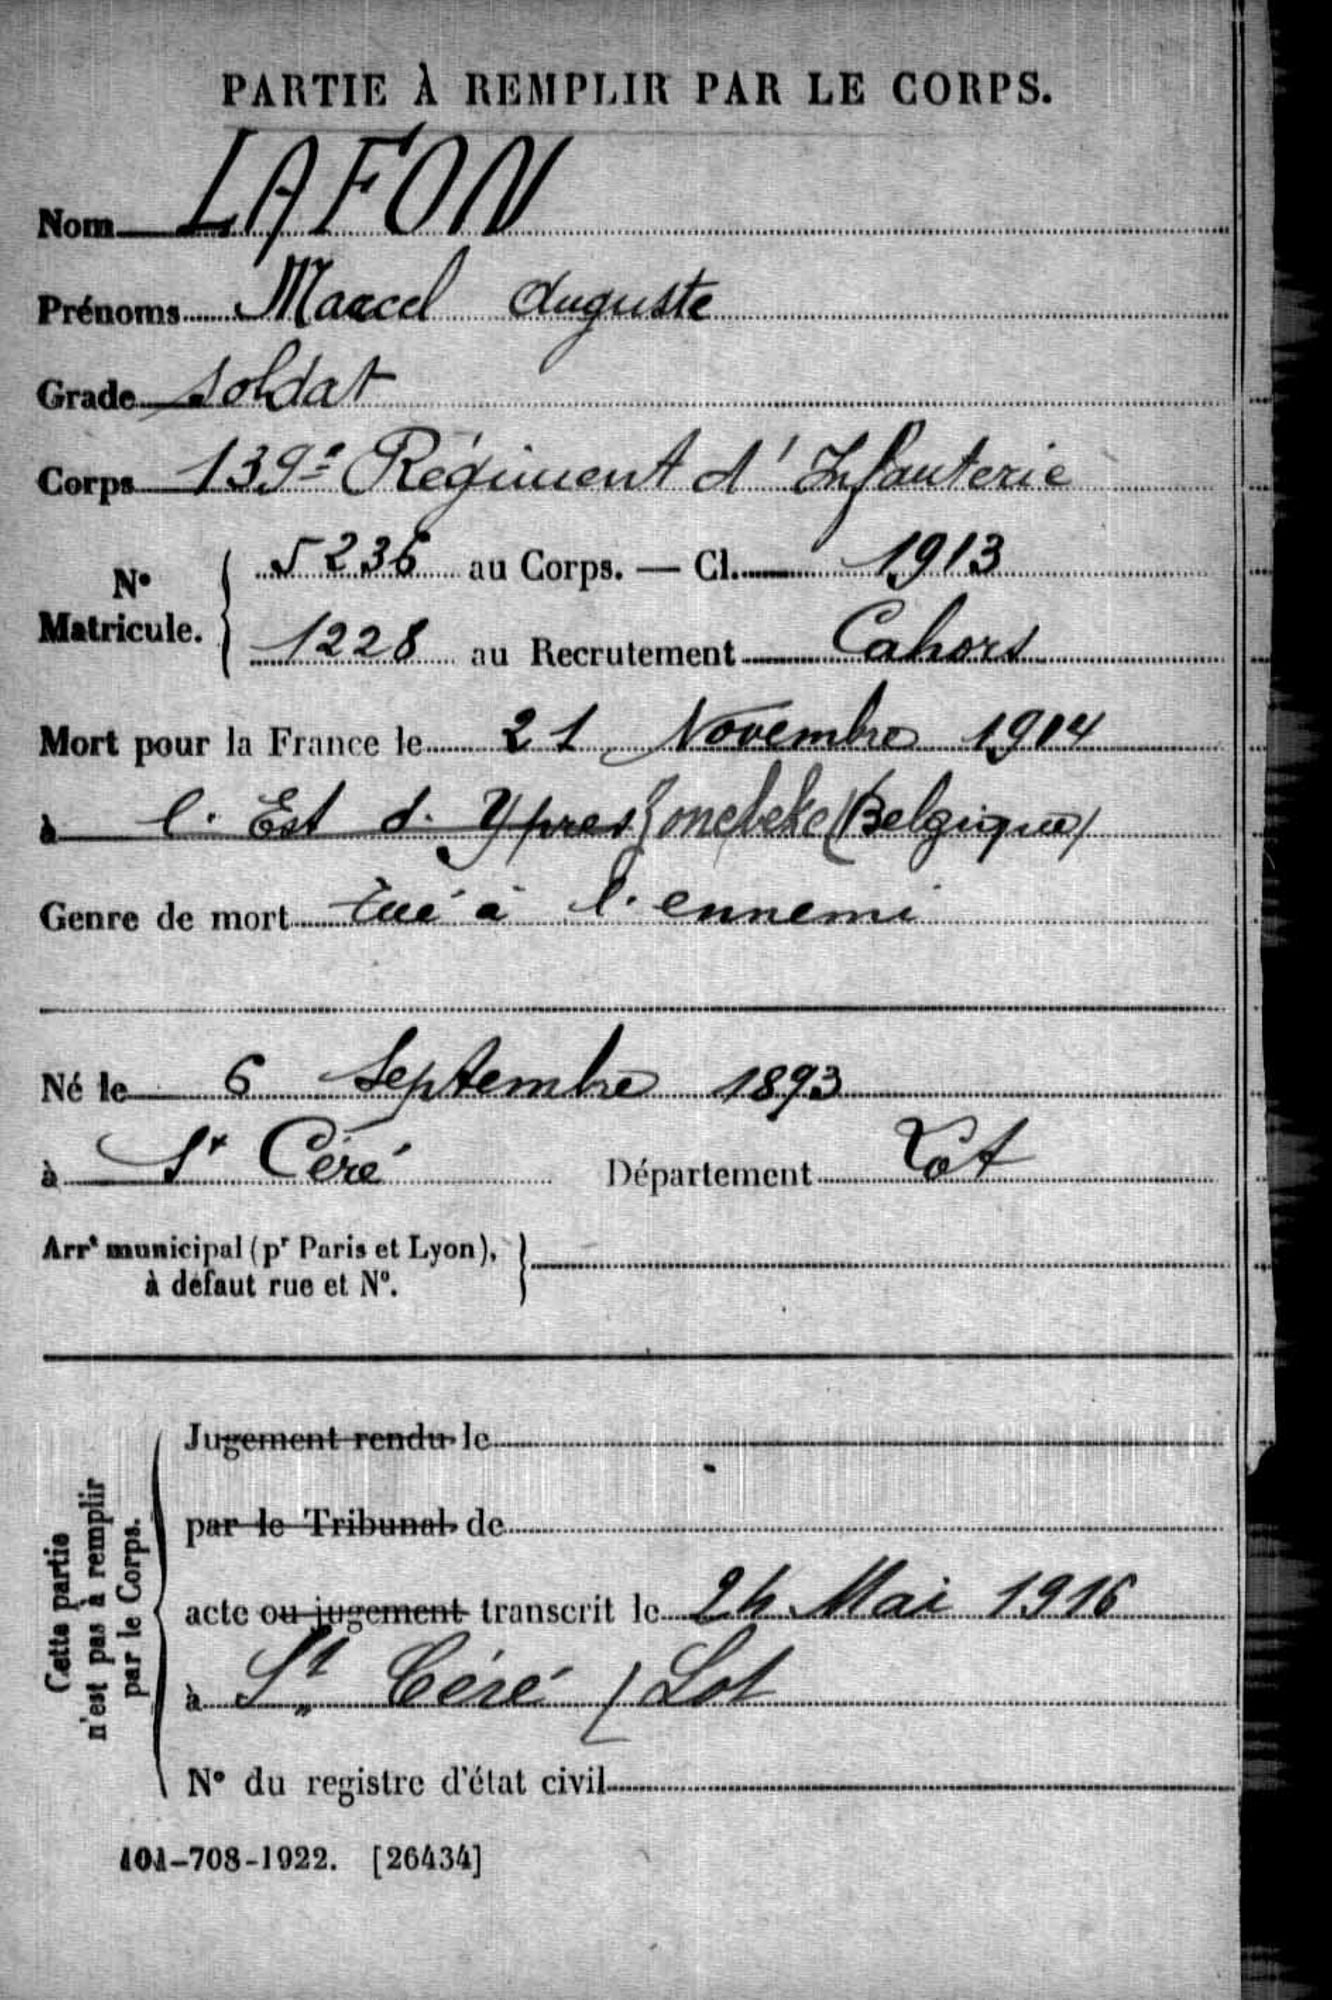 PARTIE À REMPLIR PAR LE CORPS.
Nom LAFON
Prénoms Marcel Auguste
Grade Soldat
Corps 139e Régiment d'Infanterie
N° Matricule. { 5236 au Corps. — Cl. 1913
1228 au Recrutement Cahors
Mort pour la France le 21 Novembre 1914
à l'Est d'Ypres Zonebeke (Belgique)
Genre de mort tué à l'ennemi
Né le 6 Septembre 1893
à St Céré Département Lot
Arrt municipal (pr Paris et Lyon),
à défaut rue et N°. }
Cette partie
n'est pas à remplir
par le Corps.
Jugement rendu le
par le Tribunal de
acte ou jugement transcrit le 24 Mai 1916
à St Céré / Lot
N° du registre d'état civil
101-708-1922. [26434]